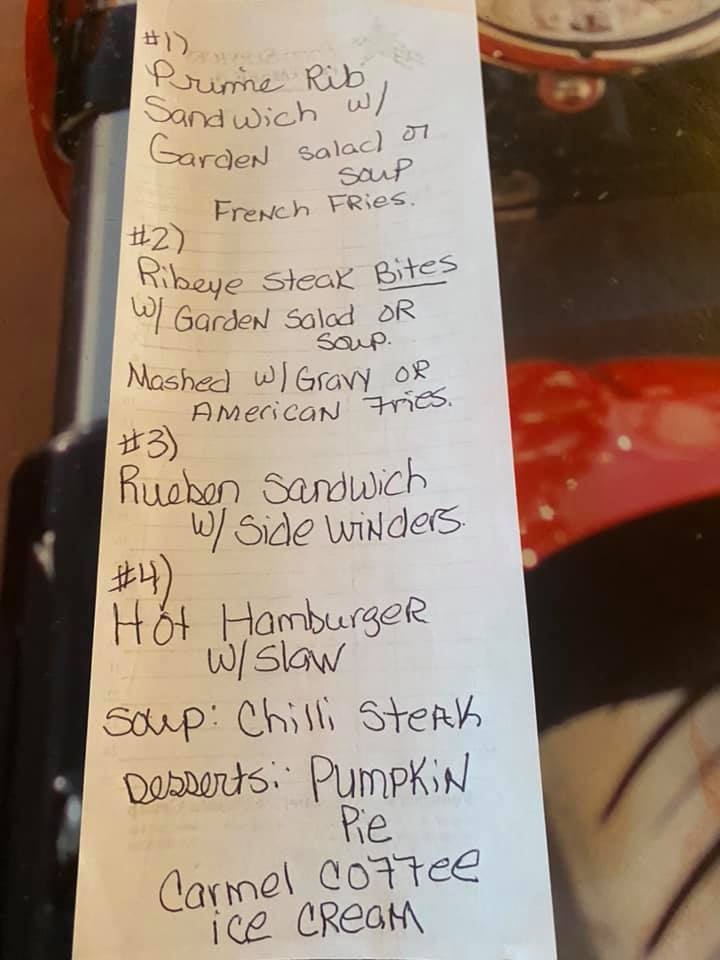 #1)
Prime Rib
Sandwich w/
Garden salad or
soup
French Fries.
#2)
Ribeye Steak Bites
w/ Garden Salad OR
Soup.
Mashed w/ Gravy OR
American Fries.
#3)
Rueben Sandwich
w/ Side Winders.
#4)
Hot Hamburger
w/ Slaw
Soup: Chilli Steak
Desserts: Pumpkin
Pie
Carmel Coffee
ice CReam